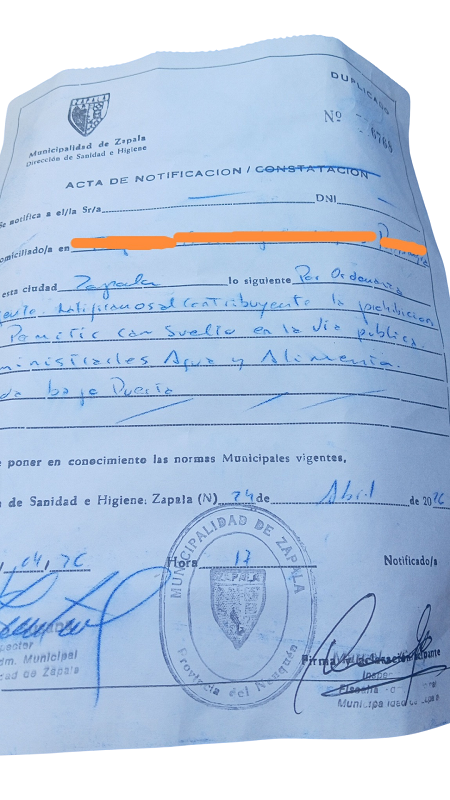 DUPLICADO
ZAPALA
Municipalidad de Zapala
Dirección de Sanidad e Higiene
Nº 6769
ACTA DE NOTIFICACION / CONSTATACION
Se notifica a el/la Sr/a DNI
omiciliado/a en
esta ciudad Zapala lo siguiente Por Ordenanza
gente. Notificamos al Contribuyente la prohibicion
Permitir can suelto en la via publica
ministrarles Agua y Alimento.
da bajo Puerta
poner en conocimiento las normas Municipales vigentes,
de Sanidad e Higiene: Zapala (N) 24 de Abril de 2026
04, 26 Hora 17 Notificado/a
MUNICIPALIDAD DE ZAPALA
ZAPALA
Provincia del Neuquén
Firma y Aclaración
dm. Municipal
ad de Zapala
Municipalidad de Zapala